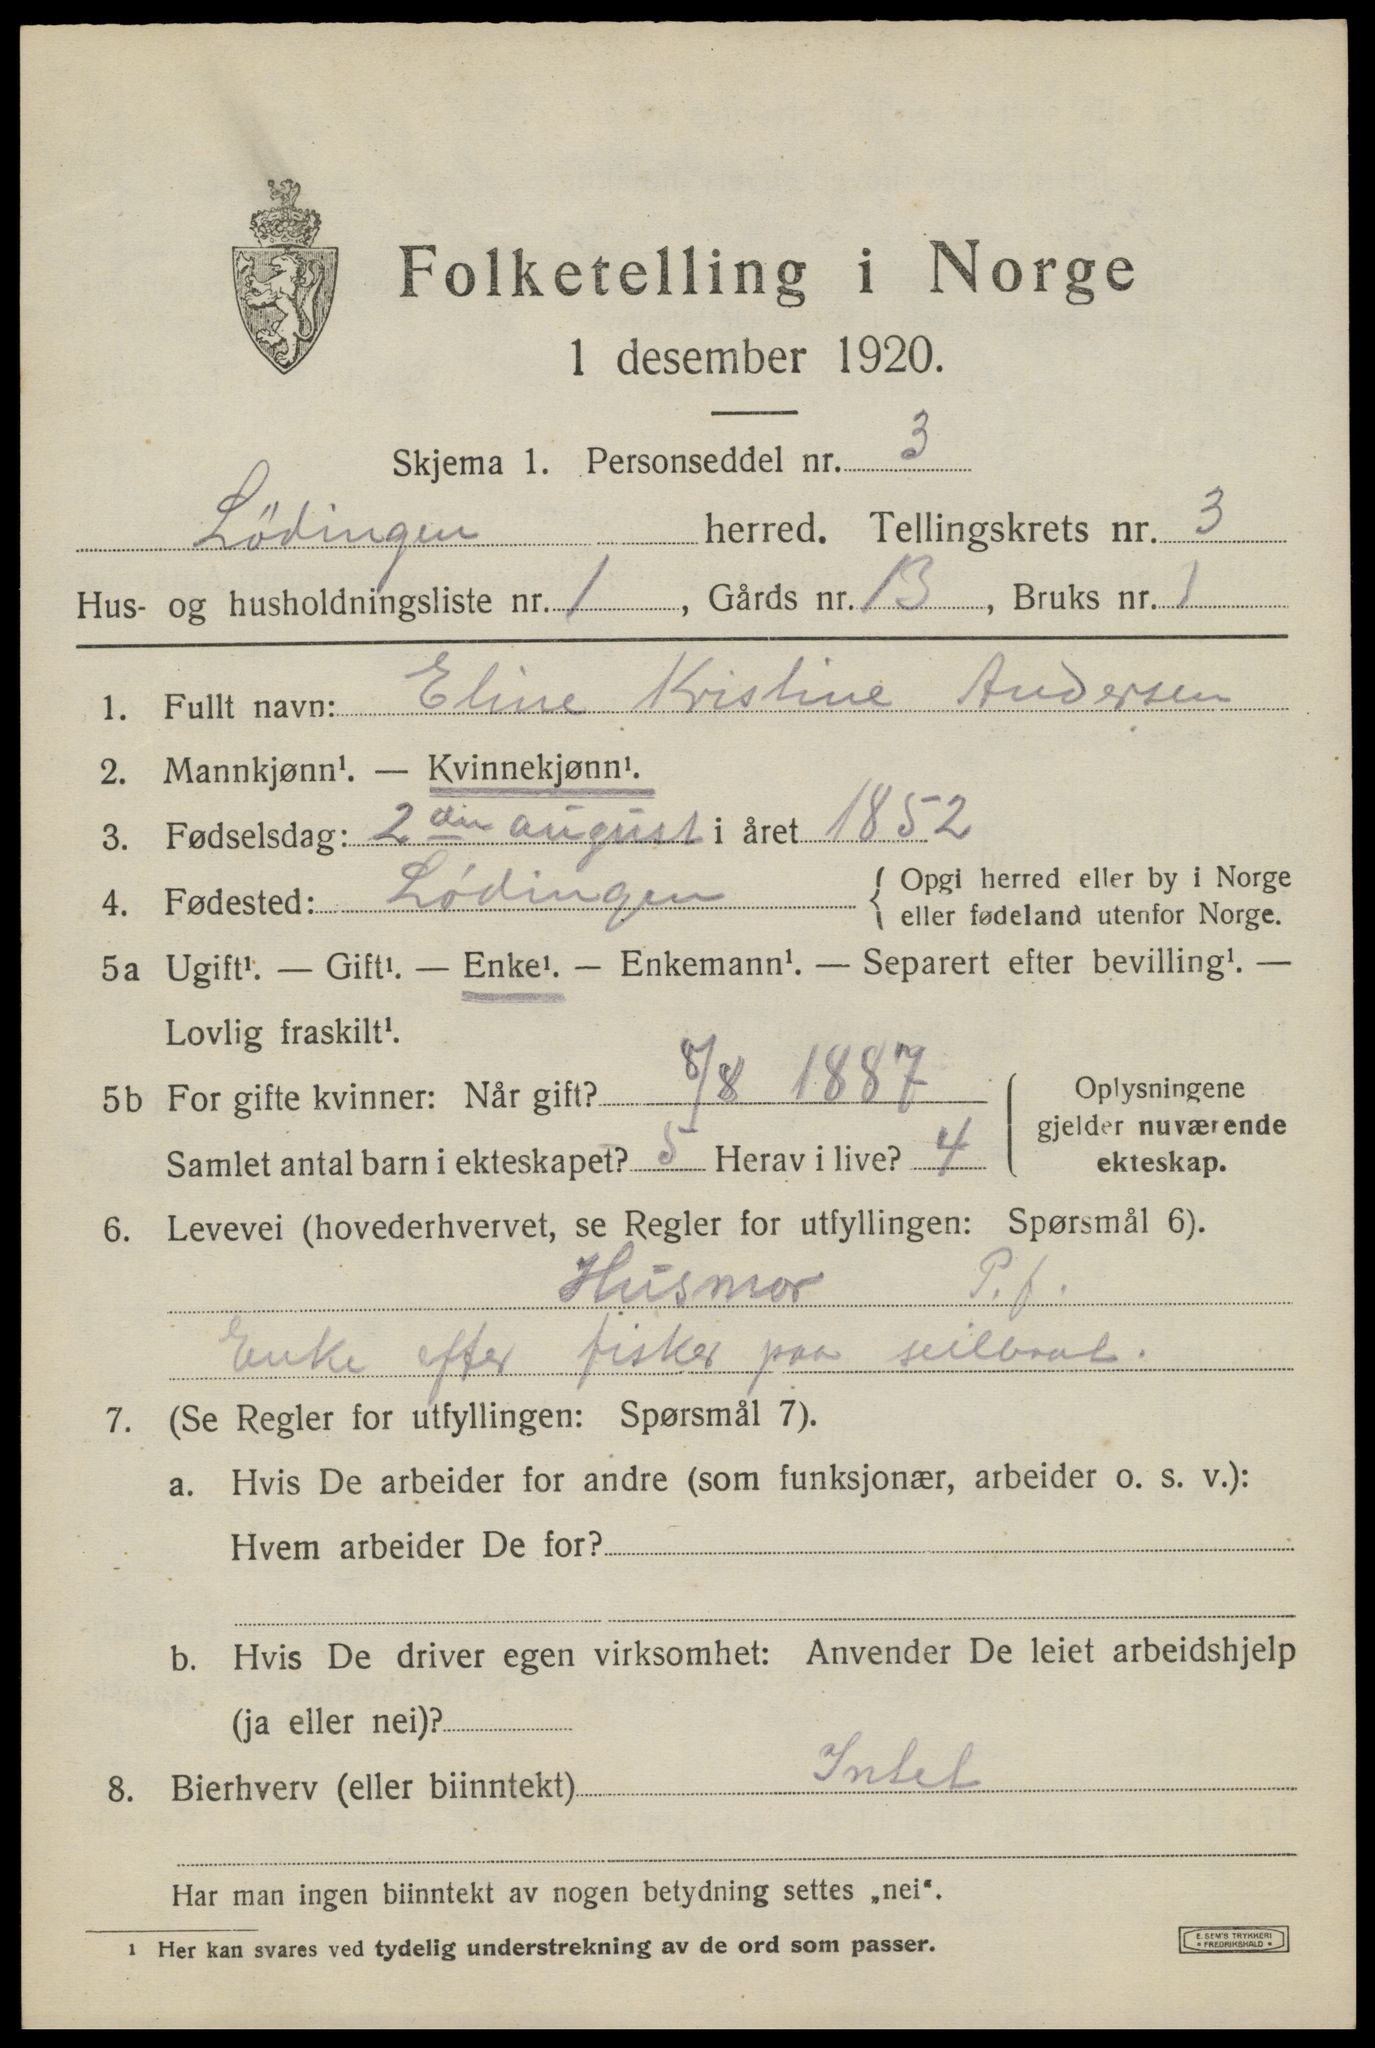 Folketelling i Norge
1 desember 1920.
Skjema 1. Personseddel nr. 3
Lödingen herred. Tellingskrets nr. 3
Hus- og husholdningsliste nr. 1, Gårds nr. 13, Bruks nr. 1
1. Fullt navn: Eline Kristine Andersen
2. Mannkjønn¹. — Kvinnekjønn¹.
3. Fødselsdag: 2den august i året 1852
4. Fødested: Lódingen { Opgi herred eller by i Norge
eller fødeland utenfor Norge.
5a Ugift¹. — Gift¹. — Enke¹. — Enkemann¹. — Separert efter bevilling¹. —
Lovlig fraskilt¹.
5b For gifte kvinner: Når gift? 8/8 1887
Samlet antal barn i ekteskapet? 5 Herav i live? 4
Oplysningene
gjelder nuværende
ekteskap.
6. Levevei (hovederhvervet, se Regler for utfyllingen: Spørsmål 6).
Husmor P.f.
Enke efter fisker paa seilbaat.
7. (Se Regler for utfyllingen: Spørsmål 7).
a. Hvis De arbeider for andre (som funksjonær, arbeider o. s. v.):
Hvem arbeider De for?
b. Hvis De driver egen virksomhet: Anvender De leiet arbeidshjelp
(ja eller nei)?
8. Bierhverv (eller biinntekt) Intet
Har man ingen biinntekt av nogen betydning settes „nei“.
¹ Her kan svares ved tydelig understrekning av de ord som passer.
E. SEM'S TRYKKERI
• FREDRIKSHALD •